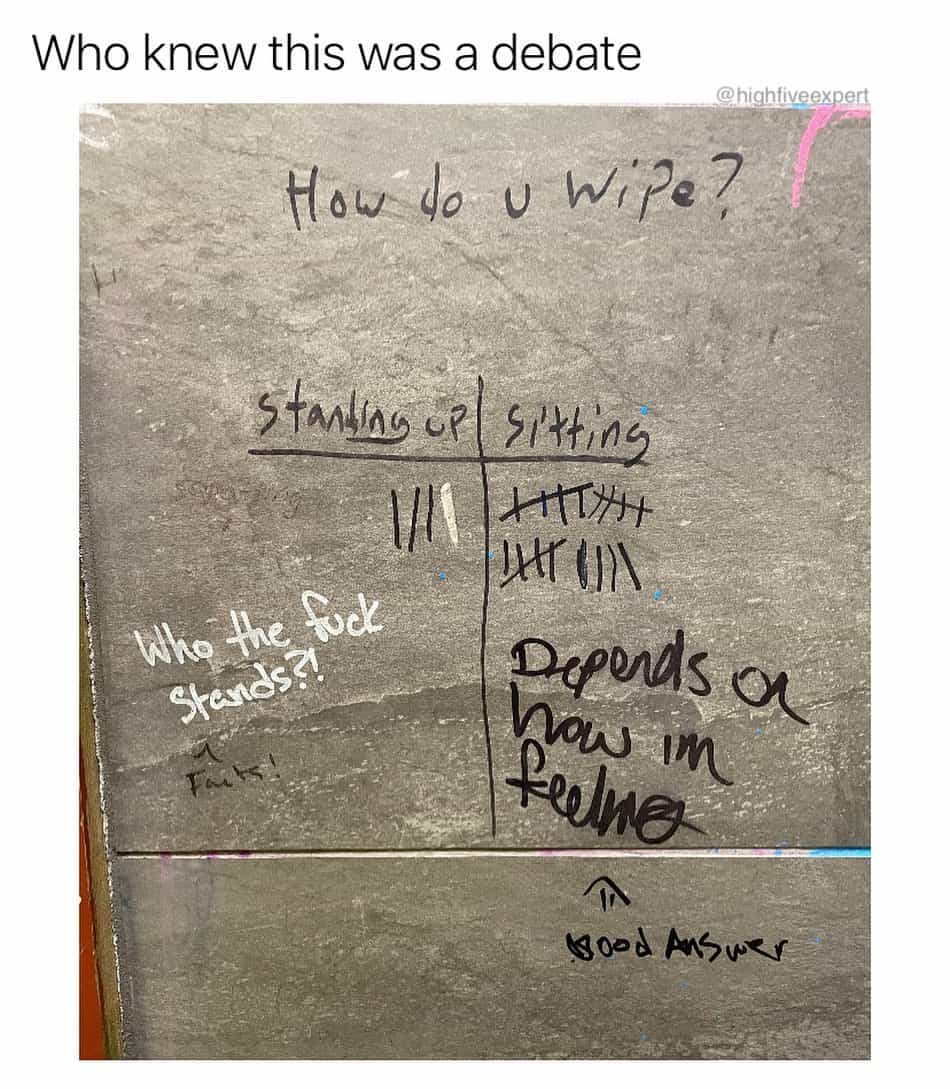 Who knew this was a debate
@highfiveexpert
How do u wipe?
Standing up
Sitting
Who the fuck
Stands?!
Facts!
Depends on
how im
feeling
Good Answer